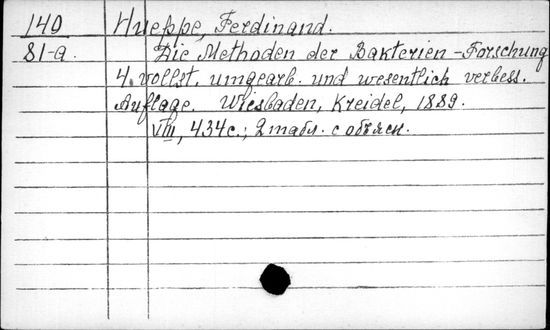 140 Hueppe, Ferdinand.
81-a. Die Methoden der Bakterien-Forschung
4. vollst. umgearb. und wesentlich verbess.
Auflage. Wiesbaden, Kreidel, 1889.
VIII, 434 с.; 2 табл. с объясн.